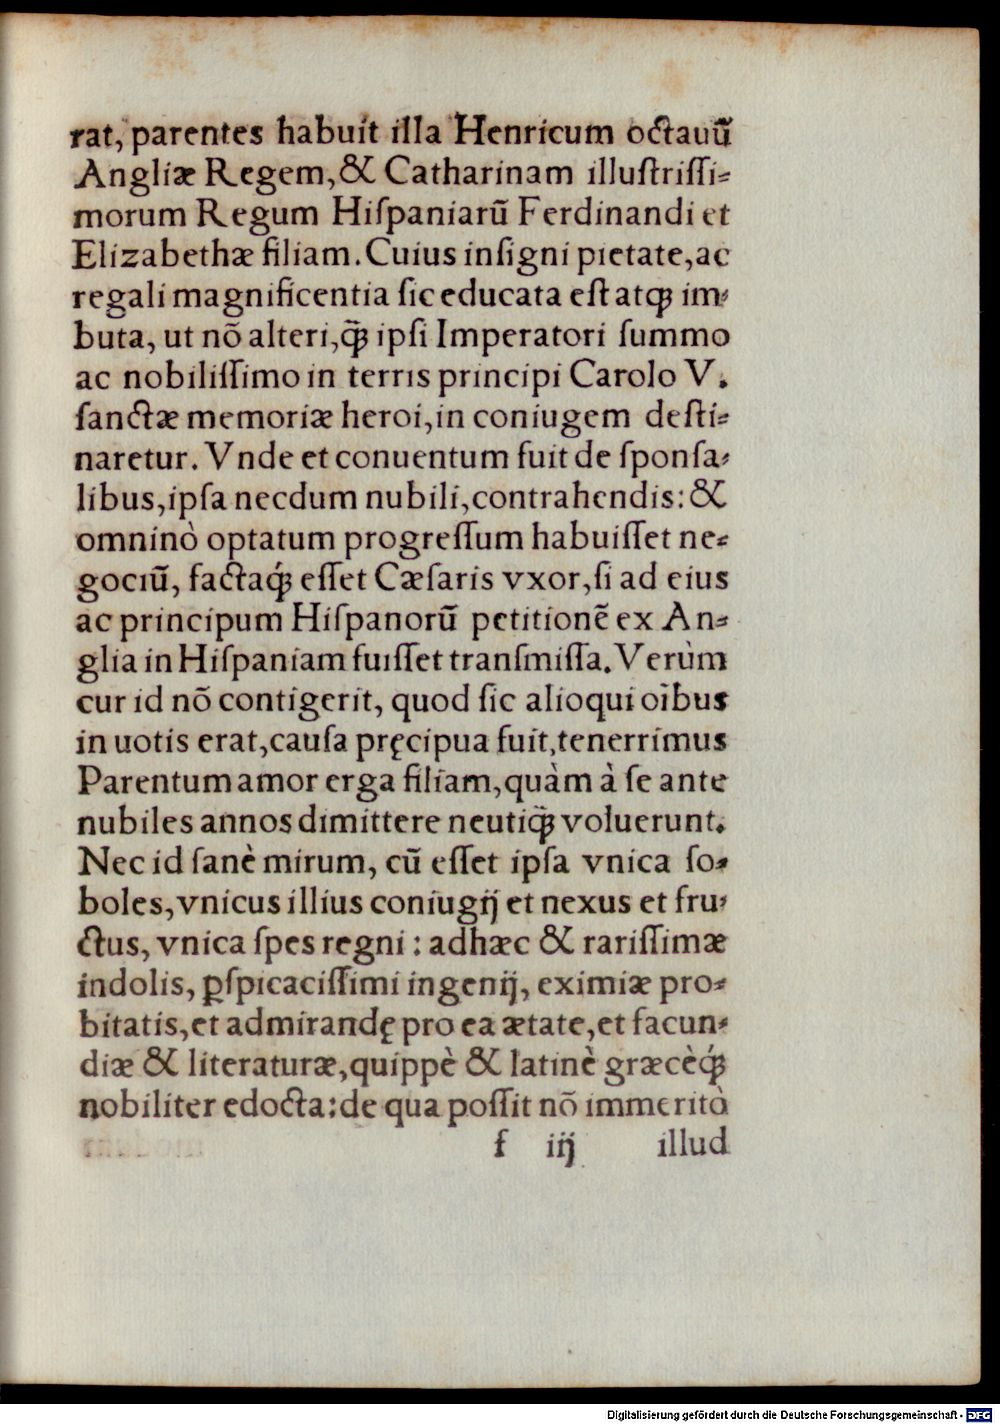 rat, parentes habuit illa Henricum octauũ
Angliæ Regem, & Catharinam illuſtriſſi-
morum Regum Hiſpaniarũ Ferdinandi et
Elizabethæ filiam. Cuius inſigni pietate, ac
regali magnificentia ſic educata eſt atqꝫ im-
buta, ut nõ alteri, q̃ꝫ ipſi Imperatori ſummo
ac nobiliſſimo in terris principi Carolo V.
ſanctæ memoriæ heroi, in coniugem deſti-
naretur. Vnde et conuentum fuit de ſponſa-
libus, ipſa necdum nubili, contrahendis: &
omninò optatum progreſſum habuiſſet ne-
gociũ, factaq́ꝫ eſſet Cæſaris vxor, ſi ad eius
ac principum Hiſpanorũ petitionẽ ex An-
glia in Hiſpaniam fuiſſet tranſmiſſa. Verùm
cur id nõ contigerit, quod ſic alioqui oĩbus
in uotis erat, cauſa pręcipua fuit, tenerrimus
Parentum amor erga filiam, quàm à ſe ante
nubiles annos dimittere neutiq̃ꝫ voluerunt.
Nec id ſanè mirum, cũ eſſet ipſa vnica ſo-
boles, vnicus illius coniugij et nexus et fru-
ctus, vnica ſpes regni: adhæc & rariſſimæ
indolis, ꝑſpicaciſſimi ingenij, eximiæ pro-
bitatis, et admirandę pro ea ætate, et facun-
diæ & literaturæ, quippè & latinè græcèq́ꝫ
nobiliter edocta: de qua poſſit nõ immeritò
f iij illud
Digitalisierung gefördert durch die Deutsche Forschungsgemeinschaft - DFG